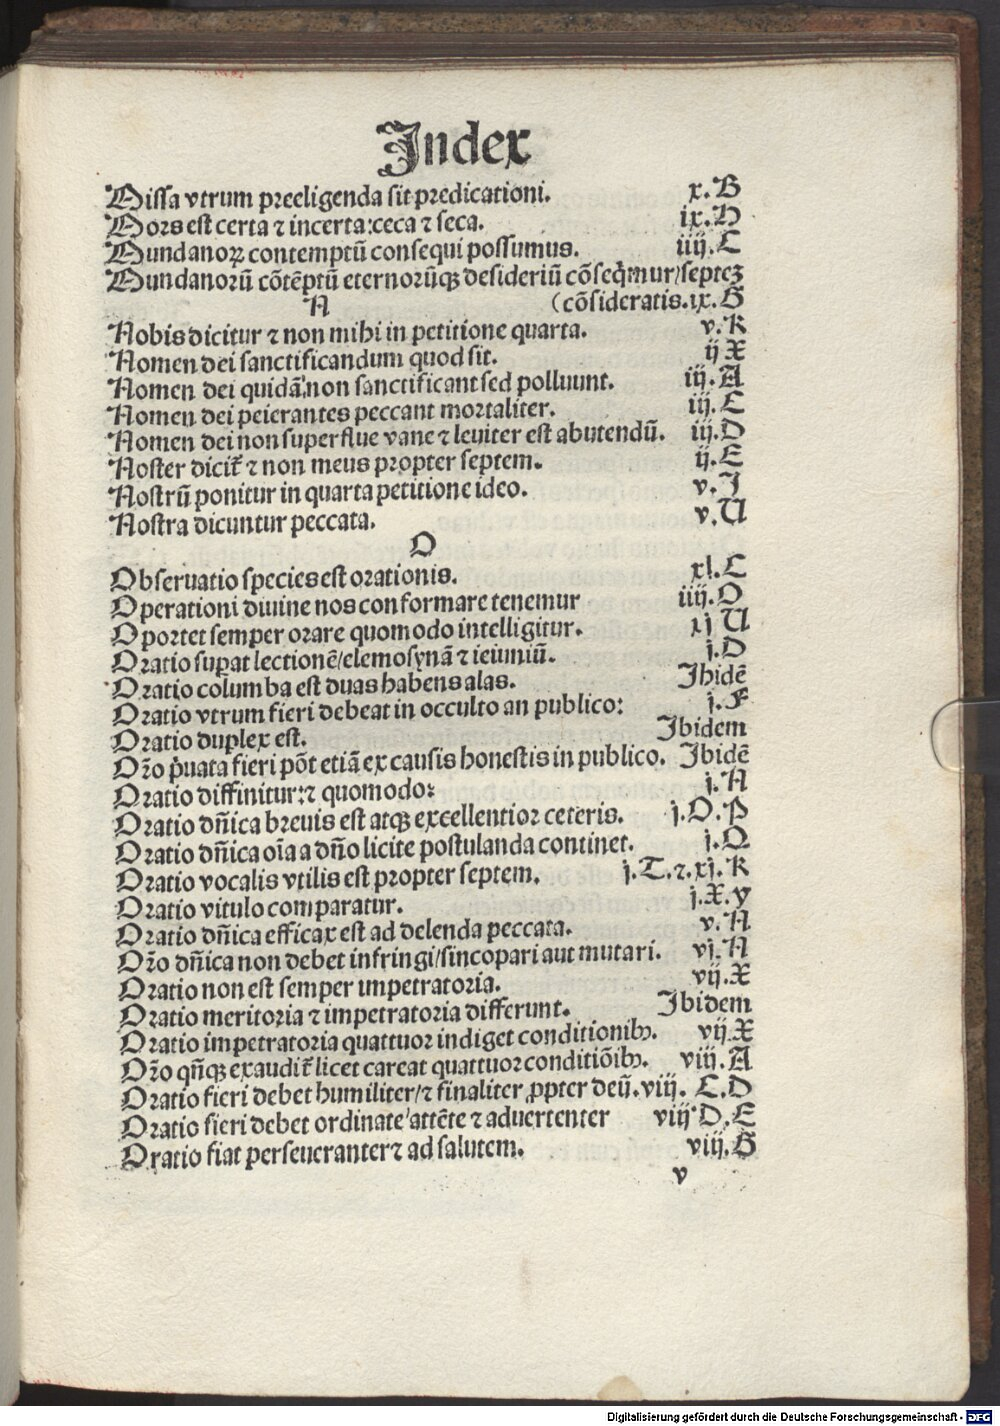 Index
Missa vtrum preeligenda sit predicationi. x.B
Mors est certa ⁊ incerta:ceca ⁊ seca. ix.H
Mundanoꝝ contemptū consequi possumus. iiij.C
Mundanorū cōtēptū eternorūqꝫ desideriū cōseq̄mur/septeꝫ
N (cōsideratis.ix.G
Nobis dicitur ⁊ non mihi in petitione quarta. v.K
Nomen dei sanctificandum quod sit. ij X
Nomen dei quidā non sanctificant sed polluunt. iij.A
Nomen dei peierantes peccant mortaliter. iij.C
Nomen dei non superflue vane ⁊ leuiter est abutendū. iij.D
Noster dicit̄ ⁊ non meus propter septem. ij.E
Nostrū ponitur in quarta petitione ideo. v.J
Nostra dicuntur peccata. v.U
O
Obseruatio species est orationis. xl.C
Operationi diuine nos conformare tenemur iiij.O
Oportet semper orare quomodo intelligitur. xj U
Oratio suꝑat lectionē/elemosynā ⁊ ieiuniū. j.D
Oratio columba est duas habens alas. Jbidē
Oratio vtrum fieri debeat in occulto an publico: j.F
Oratio duplex est. Jbidem
Or̄o p̄uata fieri pōt etiā ex causis honestis in publico. Jbidē
Oratio diffinitur:⁊ quomodo: j.N
Oratio dn̄ica breuis est atqꝫ excellentior ceteris. j.O.P
Oratio dn̄ica oīa a dn̄o licite postulanda continet. j.Q
Oratio vocalis vtilis est propter septem. j.T.⁊.xj.K
Oratio vitulo comparatur. j.X.y
Oratio dn̄ica efficax est ad delenda peccata. v.N
Or̄o dn̄ica non debet infringi/sincopari aut mutari. vj.N
Oratio non est semper impetratoria. vij.X
Oratio meritoria ⁊ impetratoria differunt. Jbidem
Oratio impetratoria quattuor indiget conditionibꝰ. vij X
Or̄o qn̄qꝫ exaudit̄ licet careat quattuor conditiōibꝰ. viij.A
Oratio fieri debet humiliter/⁊ finaliter ꝓpter deū.viij. C.D
Oratio fieri debet ordinate/attēte ⁊ aduertenter viij D.E
Oratio fiat perseueranter ⁊ ad salutem. viij.G
v
Digitalisierung gefördert durch die Deutsche Forschungsgemeinschaft - DFG